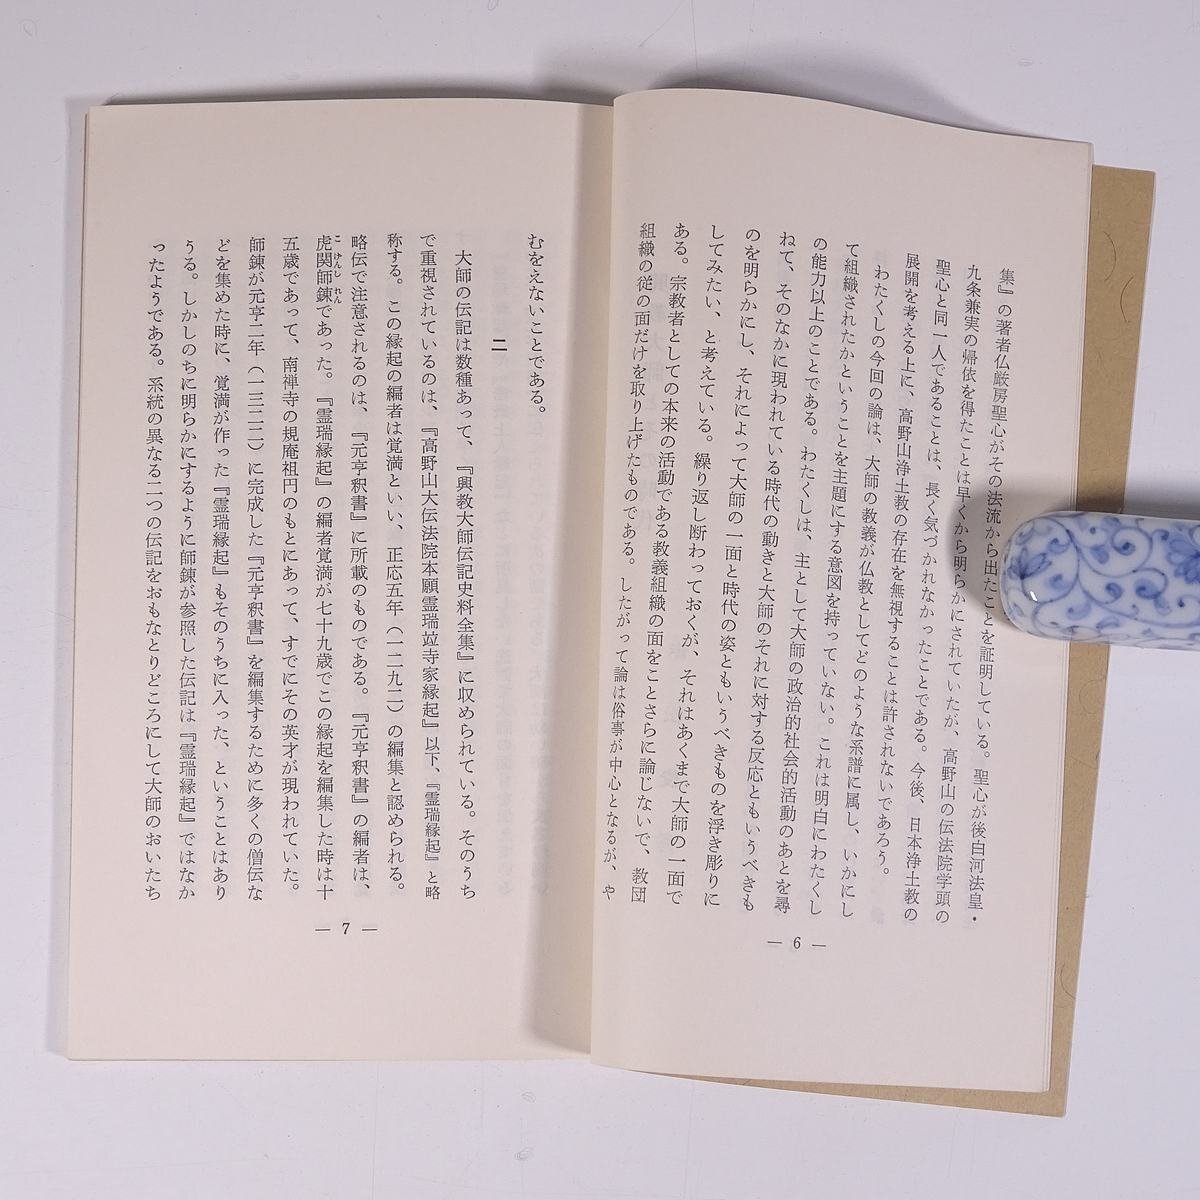 集』の著者仏厳房聖心がその法流から出たことを証明している。聖心が後白河法皇・
九条兼実の帰依を得たことは早くから明らかにされていたが、高野山の伝法院学頭の
聖心と同一人であることは、長く気づかれなかったことである。今後、日本浄土教の
展開を考える上に、高野山浄土教の存在を無視することは許されないであろう。
わたくしの今回の論は、大師の教義が仏教としてどのような系譜に属し、いかにし
て組織されたかということを主題にする意図を持っていない。これは明白にわたくし
の能力以上のことである。わたくしは、主として大師の政治的社会的活動のあとを尋
ねて、そのなかに現われている時代の動きと大師のそれに対する反応ともいうべきも
のを明らかにし、それによって大師の一面と時代の姿ともいうべきものを浮き彫りに
してみたい、と考えている。繰り返し断わっておくが、それはあくまで大師の一面で
ある。宗教者としての本来の活動である教義組織の面をことさらに論じないで、教団
組織の従の面だけを取り上げたものである。したがって論は俗事が中心となるが、や
— 6 —
むをえないことである。
二
大師の伝記は数種あって、『興教大師伝記史料全集』に収められている。そのうち
で重視されているのは、『高野山大伝法院本願霊瑞竝寺家縁起』以下、『霊瑞縁起』と略
称する。この縁起の編者は覚満といい、正応五年（一二九二）の編集と認められる。
略伝で注意されるのは、『元亨釈書』に所載のものである。『元亨釈書』の編者は、
虎関師錬であった。『霊瑞縁起』の編者覚満が七十九歳でこの縁起を編集した時は十
こ かんし れん
五歳であって、南禅寺の規庵祖円のもとにあって、すでにその英才が現われていた。
師錬が元亨二年（一三二二）に完成した『元亨釈書』を編集するために多くの僧伝な
どを集めた時に、覚満が作った『霊瑞縁起』もそのうちに入った、ということはあり
うる。しかしのちに明らかにするように師錬が参照した伝記は『霊瑞縁起』ではなか
ったようである。系統の異なる二つの伝記をおもなとりどころにして大師のおいたち
— 7 —